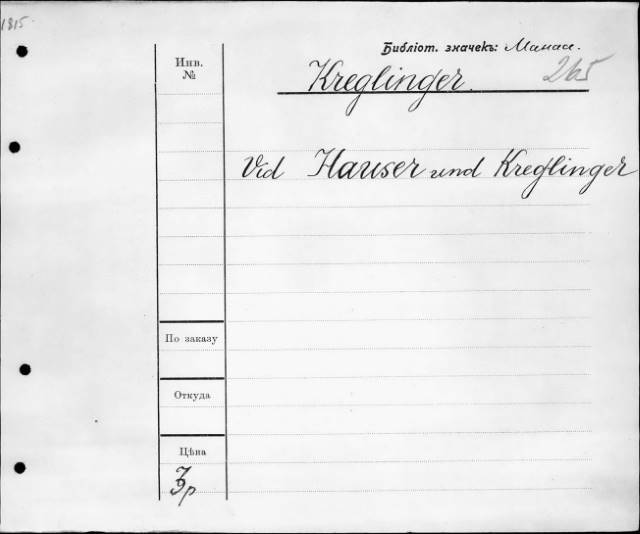 1815
Библіот. значекъ:
265
Инв.
№
Kreglinger.
Vid Hauser und Kreglinger
По заказу
Откуда
Цѣна